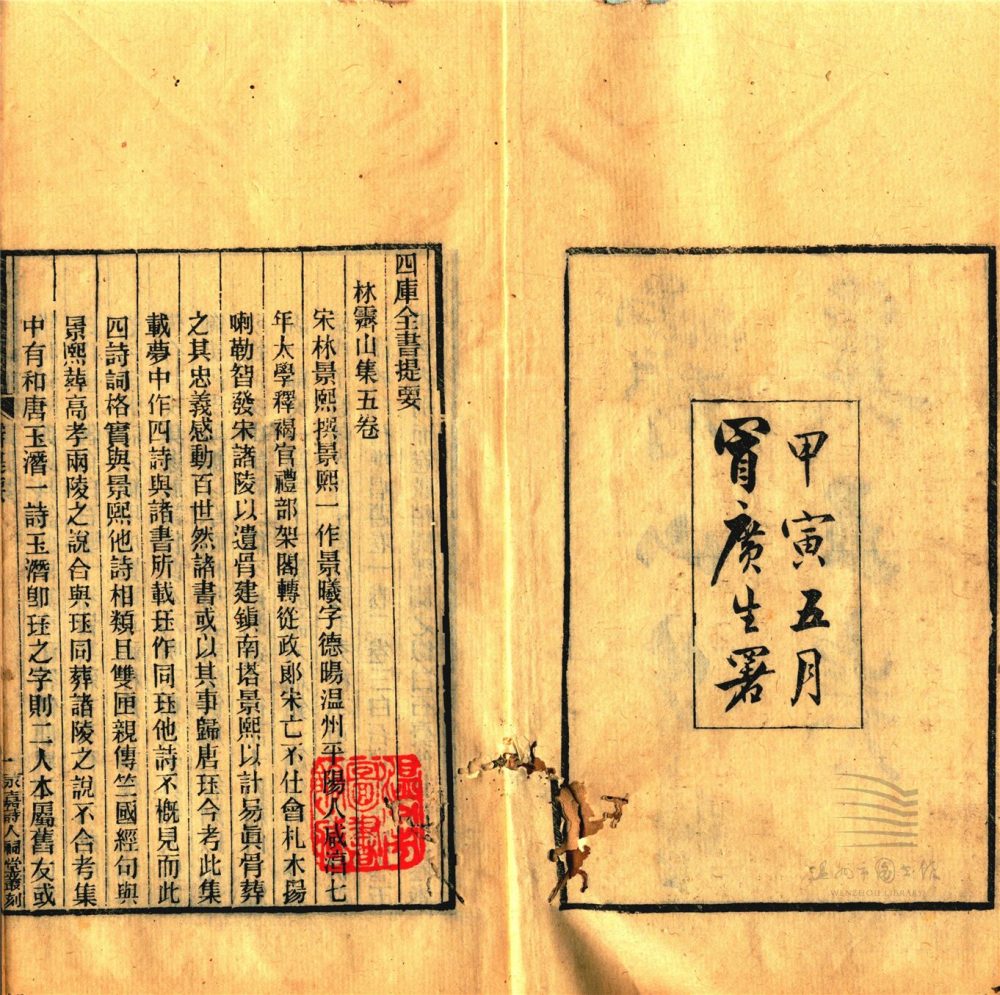 甲寅五月
冒廣生署
四庫全書提要
林霽山集五卷
宋林景熙撰景熙一作景曦字德暘温州平陽人咸淳七
年太學釋褐官禮部架閣轉從政郞宋亡不仕會札木揚
喇勒智發宋諸陵以遺骨建鎮南塔景熙以計易眞骨葬
之其忠義感動百世然諸書或以其事歸唐珏今考此集
載夢中作四詩與諸書所載珏作同珏他詩不槪見而此
四詩詞格實與景熙他詩相類且雙匣親傳竺國經句與
景熙葬高孝兩陵之說合與珏同葬諸陵之說不合考集
中有和唐玉潛一詩玉潛卽珏之字則二人本屬舊友或
一
永嘉詩人祠堂叢刻
温州市圖書館
WENZHOU LIBRARY